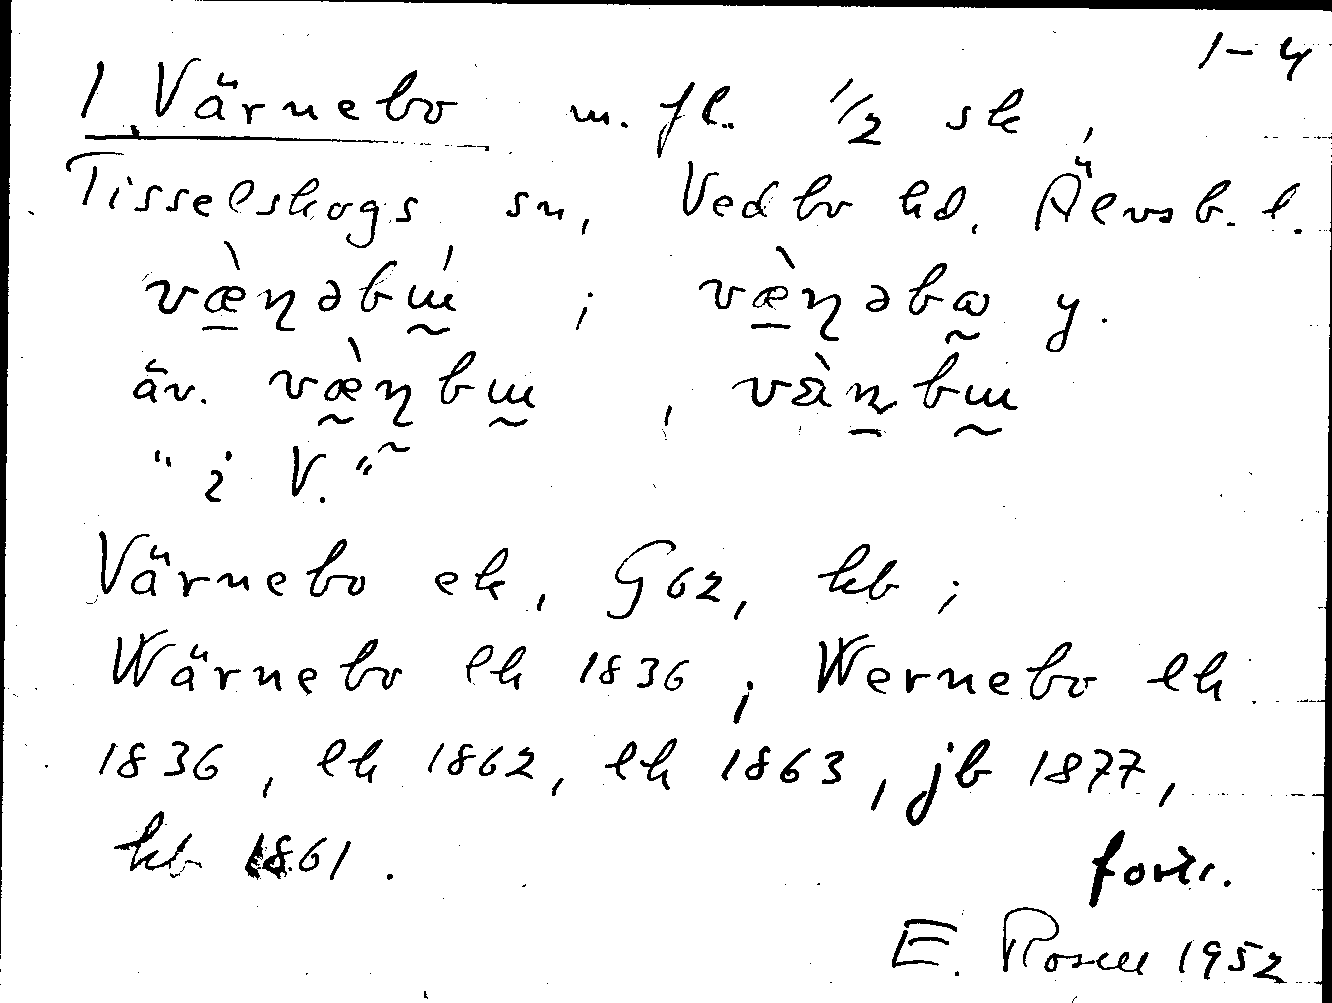 1-4
1 Värnebo m. fl. 1/2 sk,
Tisselskogs sn, Vedbo hd. Älvsb. l.
væ̀ɳəbɯ́ ; væ̀ɳəbɷ y.
äv. væ̀ɳbɯ , vàɳbɯ
"i V."
Värnebo ek, G62, kb ;
Wärnebo lh 1836 ; Wernebo lh
1836, lh 1862, lh 1863, jb 1877,
kb 1861.
forts.
E. Rosell 1952